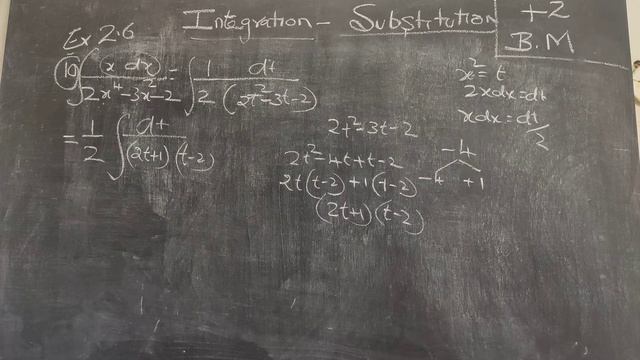 Integration - Substitution
+2
B.M
Ex 2.6
10) ∫ x dx / 2x⁴-3x²-2 = ∫ 1/2 dt / (2t²-3t-2)
x² = t
2xdx=dt
xdx=dt/2
= 1/2 ∫ dt / (2t+1)(t-2)
2t²-3t-2
2t²-4t+t-2
2t(t-2)+1(t-2)
(2t+1)(t-2)
-4
-4 +1